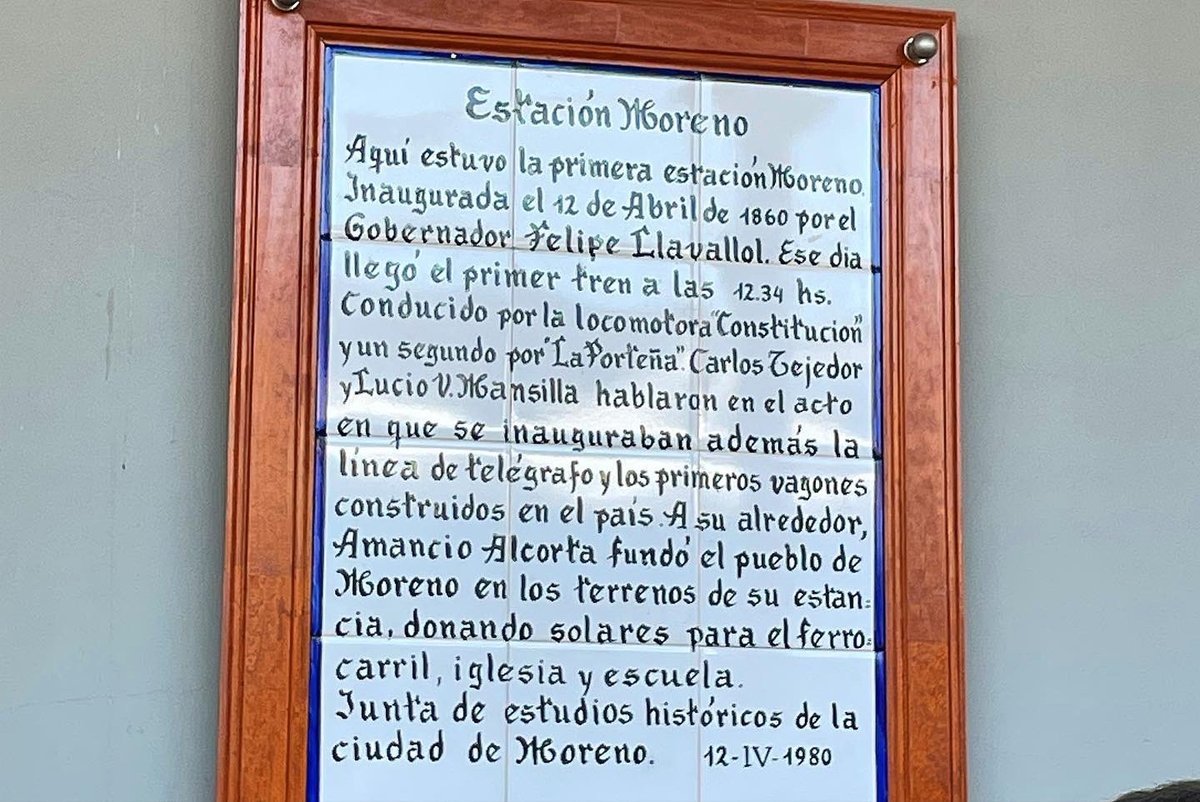 Estación Moreno
Aquí estuvo la primera estación Moreno.
Inaugurada el 12 de Abril de 1860 por el
Gobernador Felipe Llavallol. Ese dia
llegó el primer tren a las 12.34 hs.
Conducido por la locomotora "Constitucion"
y un segundo por "La Porteña". Carlos Tejedor
y Lucio V. Mansilla hablaron en el acto
en que se inauguraban además la
línea de telégrafo y los primeros vagones
construidos en el país. A su alrededor,
Amancio Alcorta fundó el pueblo de
Moreno en los terrenos de su estan=
cia, donando solares para el ferro=
carril, iglesia y escuela.
Junta de estudios históricos de la
ciudad de Moreno. 12-IV-1980